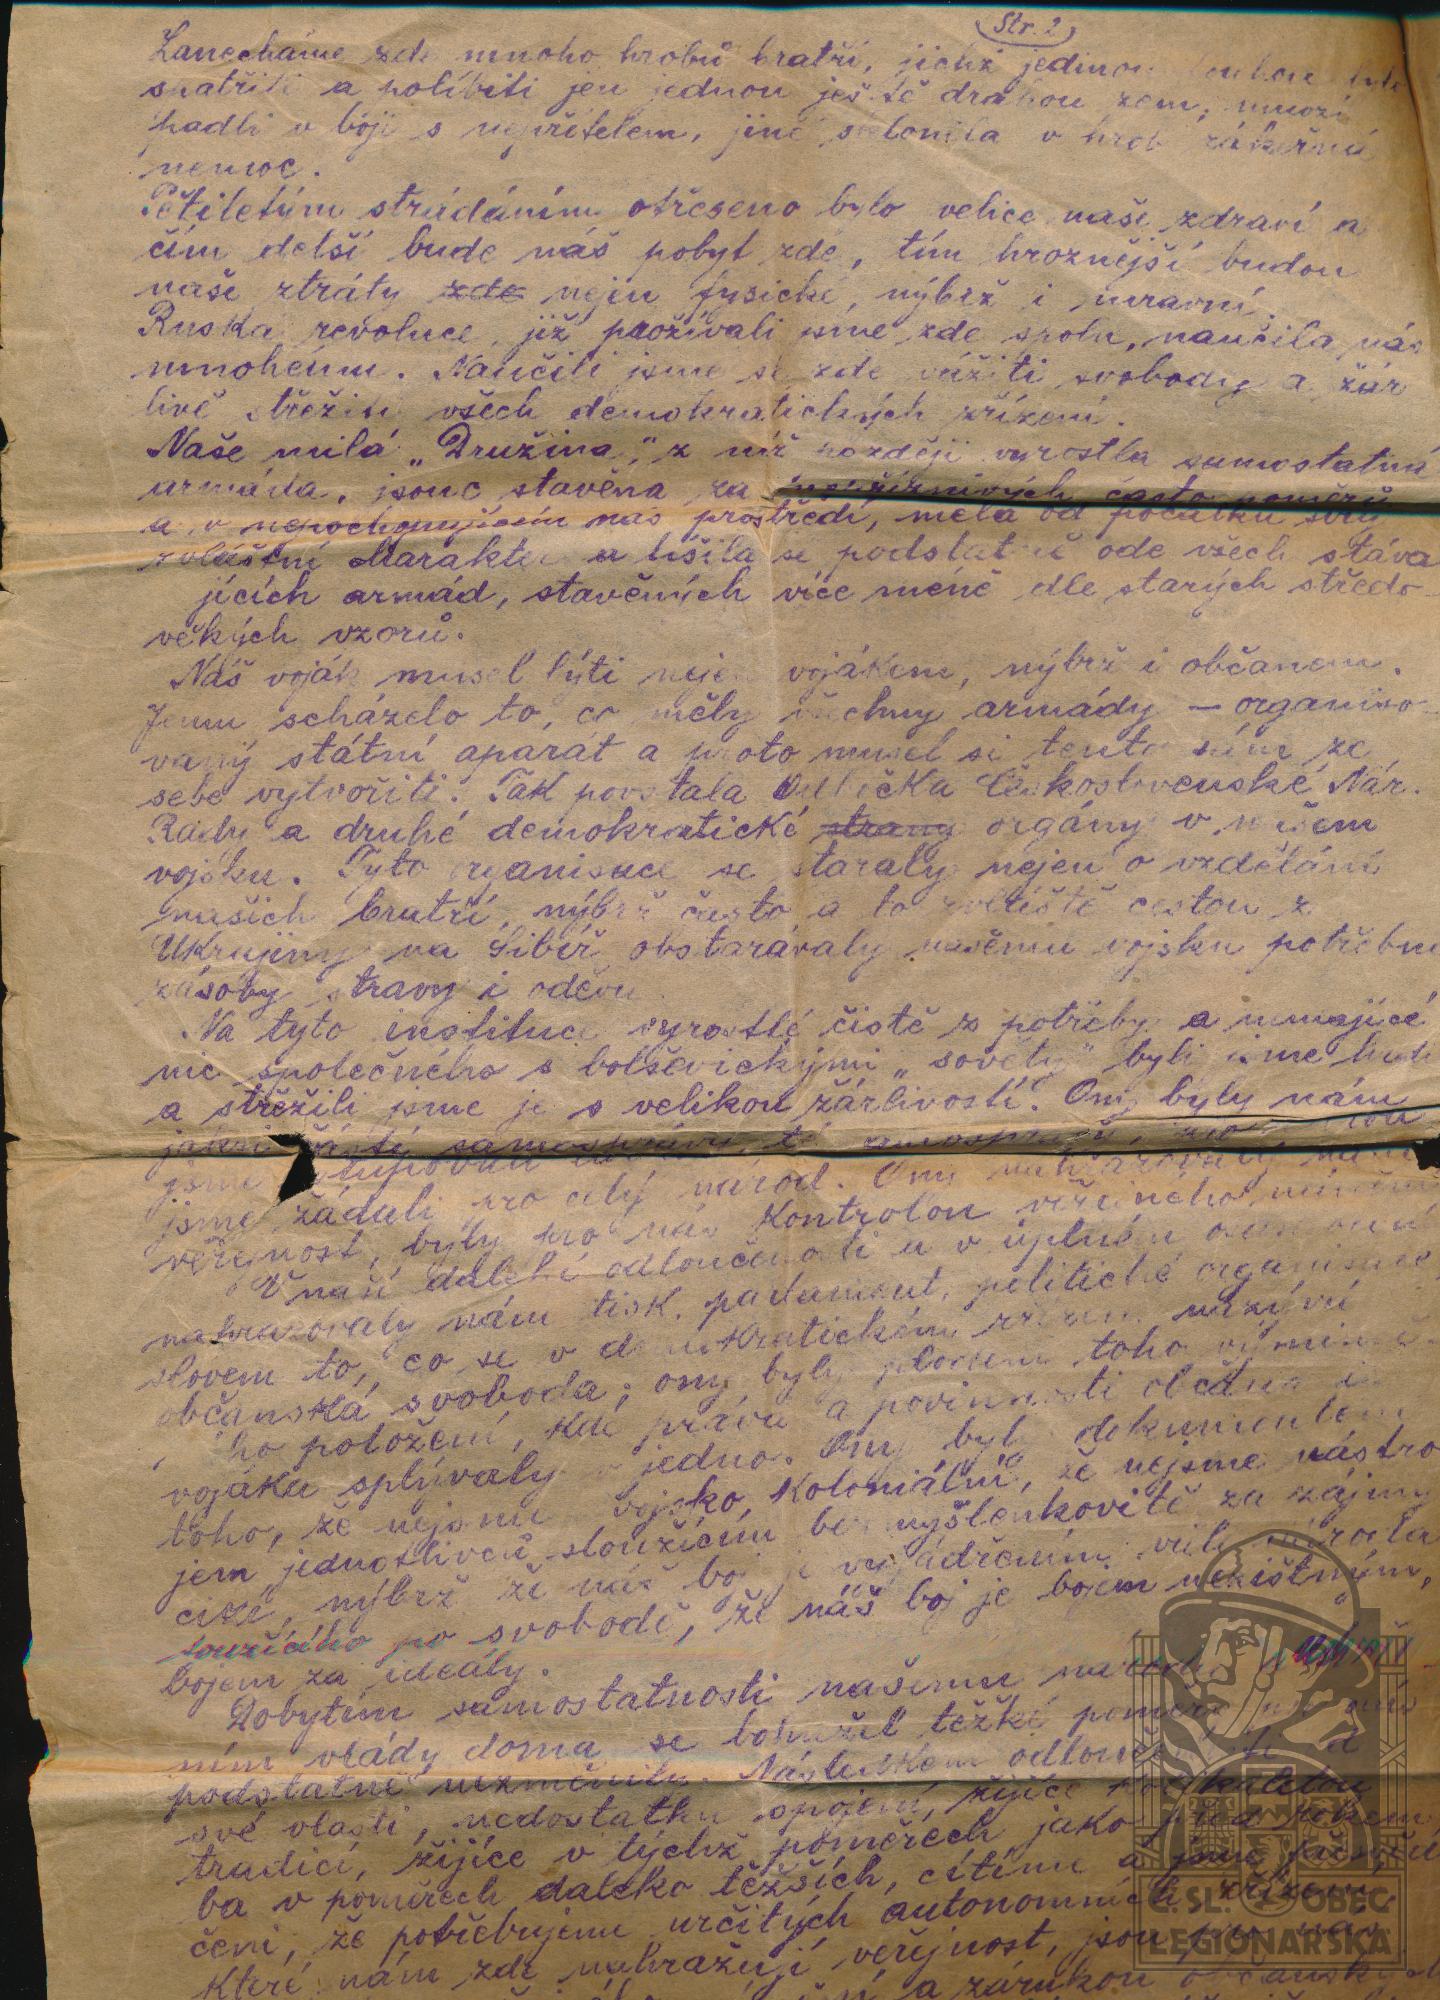 Str. 2
Zanecháme zde mnoho hrobů bratří, jichž jedinou touhou bylo
spatřiti a políbiti jen jednou ještě drahou zem; mnozí
padli v boji s nepřítelem, jiné sklonila v hrob zákeřná
nemoc.
Pětiletým strádáním otřeseno bylo velice naše zdraví a
čím delší bude náš pobyt zde, tím hroznější budou
naše ztráty zde nejen fysické, nýbrž i mravní.
Ruska revoluce, již prožívali jsme zde spolu, naučila nás
mnohému. Naučili jsme se zde vážiti svobody a žár
livě střežiti všech demokratických zřízení.
Naše milá „Družina", z níž později vyrostla samostatná
armáda, jsouc stavěna za nepříznivých často poměrů
a v nepochopujícím nás prostředí, měla od počátku svůj
zvláštní charakter a lišila se podstatně ode všech stáva
jících armád, stavěných více méně dle starých středo-
věkých vzorů.
Náš voják musel býti nejen vojákem, nýbrž i občanem.
Jemu scházelo to, co měly všechny armády – organiso-
vaný státní aparát a proto musel si tento sám ze
sebe vytvořiti. Tak povstala Odbočka Československé Nár.
Rady a druhé demokratické strany orgány v našem
vojsku. Tyto organisace se staraly nejen o vzdělání
našich bratří, nýbrž často a to zvláště cestou z
Ukrajiny na Sibiř obstarávaly našemu vojsku potřebné
zásoby stravy i oděvu.
Na tyto instituce vyrostlé čistě z potřeby a nemající
nic společného s bolševickými „sověty" byli jsme hrdi
a střežili jsme je s velikou žárlivostí. Ony byly nám
jakousi částí samosprávy, té samosprávy, kterou
jsme
jsme žádali pro celý národ. Ony nahrazovaly nám
veřejnost, byly pro nás kontrolou veřejného mínění
V naší daleké odloučenosti a v úplném osamocení
nahrazovaly nám tisk, parlament, politické organisace,
slovem to, co se v demokratickém zřízení nazývá
občanská svoboda; ony byly plodem toho výmineč-
ho položení, kde práva a povinnosti občana i
vojáka splývaly v jedno. Ony byly dokumentem
toho, že nejsme vojsko koloniální, že nejsme nástro
jem jednotlivců sloužícím bezmyšlenkovitě za zájmy
cizí, nýbrž že náš boj je vyjádřením vůle národa
toužícího po svobodě, že náš boj je bojem nezištným,
bojem za ideály.
Dobytím samostatnosti našemu národu a
ním vlády doma se bohužel těžké poměry pro nás
podstatně nezměnily. Následkem odloučenosti od
své vlasti, nedostatku spojení, žijíce
tradicí, žijíce v týchž poměrech jako před rokem,
ba v poměrech daleko těžších, cítíme a jsme přesvěd
čeni, že potřebujeme určitých autonomních zřízení,
které nám zde nahražují veřejnost, jsou pro nás
a zárukou občanských
Č. SL. OBEC
LEGIONÁŘSKÁ